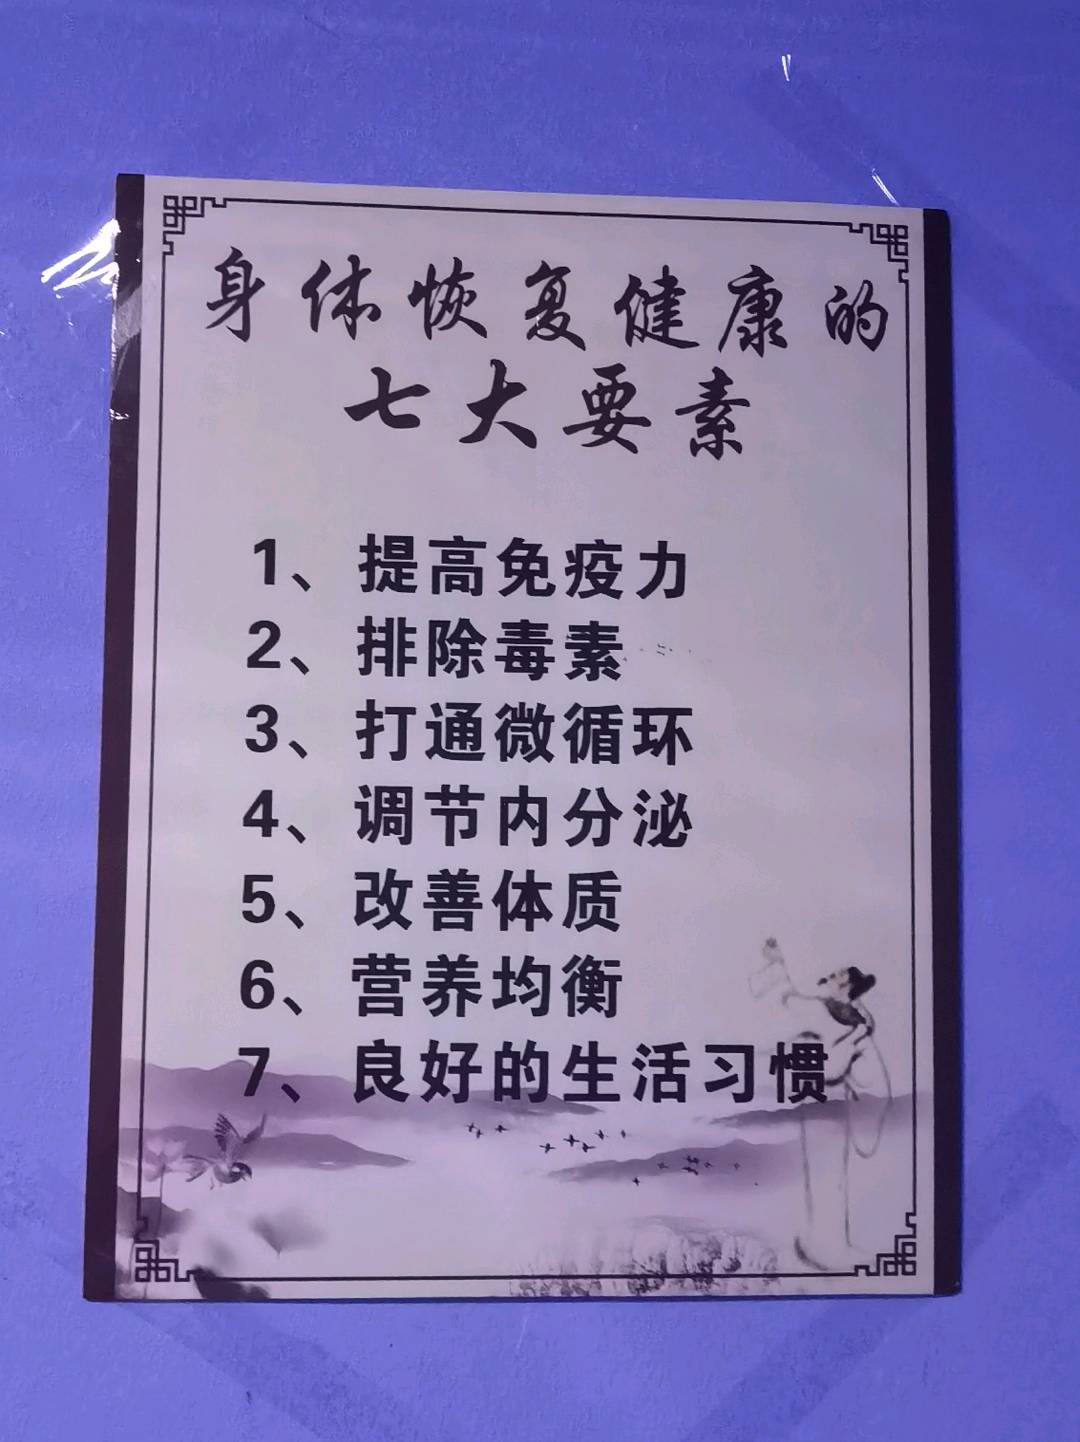 身体恢复健康的
七大要素
1、提高免疫力
2、排除毒素
3、打通微循环
4、调节内分泌
5、改善体质
6、营养均衡
7、良好的生活习惯